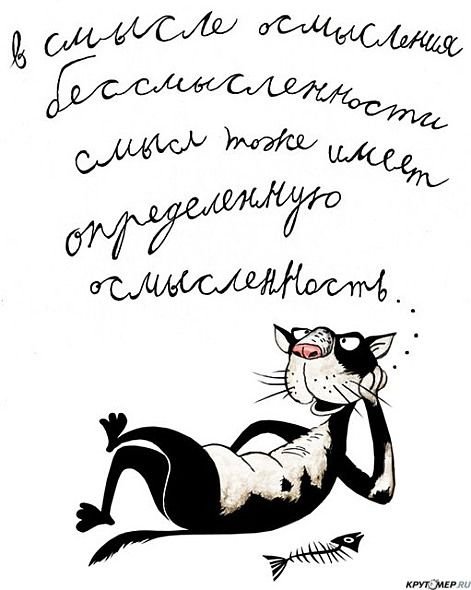 в смысле осмысления
бессмысленности
смысл тоже имеет
определенную
осмысленность...
КРУТОМЕР.RU